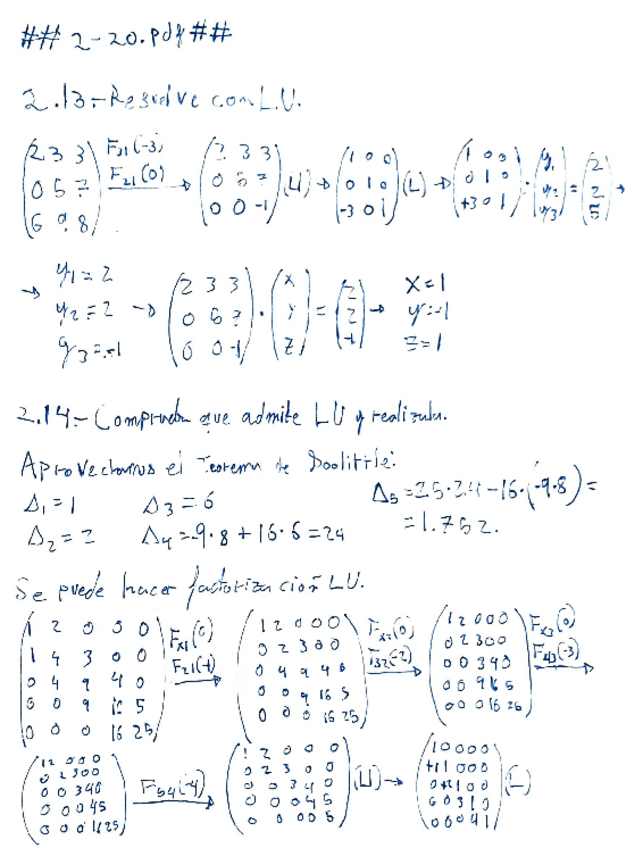 ## 2-20.pdf##
2.13.-Resuelve con L.U.
(2 3 3; 0 5 7; 6 9 8) F31(-3) F21(0) → (2 3 3; 0 5 7; 0 0 -1) (U) → (1 0 0; 0 1 0; -3 0 1) (L) → (1 0 0; 0 1 0; +3 0 1) · (y1; y2; y3) = (2; 2; 5) →
→ y1 = 2 y2 = 2 y3 = -1 → (2 3 3; 0 5 7; 0 0 -1) · (x; y; z) = (2; 2; -1) → x=1 y=-1 z=1
2.14.- Comprueba que admite LU y realizala.
Aprovechamos el Teorema de Doolittle:
Δ1 = 1 Δ3 = 6 Δ5 = 25·24 - 16·(-9·8) =
Δ2 = 2 Δ4 = -9·8 + 16·6 = 24 = 1.752.
Se puede hacer factorización LU.
(1 2 0 0 0; 1 4 3 0 0; 0 4 9 4 0; 0 0 9 16 5; 0 0 0 16 25) Fx1(0) F21(-1) → (1 2 0 0 0; 0 2 3 0 0; 0 4 9 4 0; 0 0 9 16 5; 0 0 0 16 25) Fx2(0) F32(-2) → (1 2 0 0 0; 0 2 3 0 0; 0 0 3 4 0; 0 0 9 16 5; 0 0 0 16 25) Fx3(0) F43(-3) →
(1 2 0 0 0; 0 2 3 0 0; 0 0 3 4 0; 0 0 0 4 5; 0 0 0 16 25) F54(-4) → (1 2 0 0 0; 0 2 3 0 0; 0 0 3 4 0; 0 0 0 4 5; 0 0 0 0 5) (U) → (1 0 0 0 0; +1 1 0 0 0; 0 +2 1 0 0; 0 0 3 1 0; 0 0 0 4 1) (L)